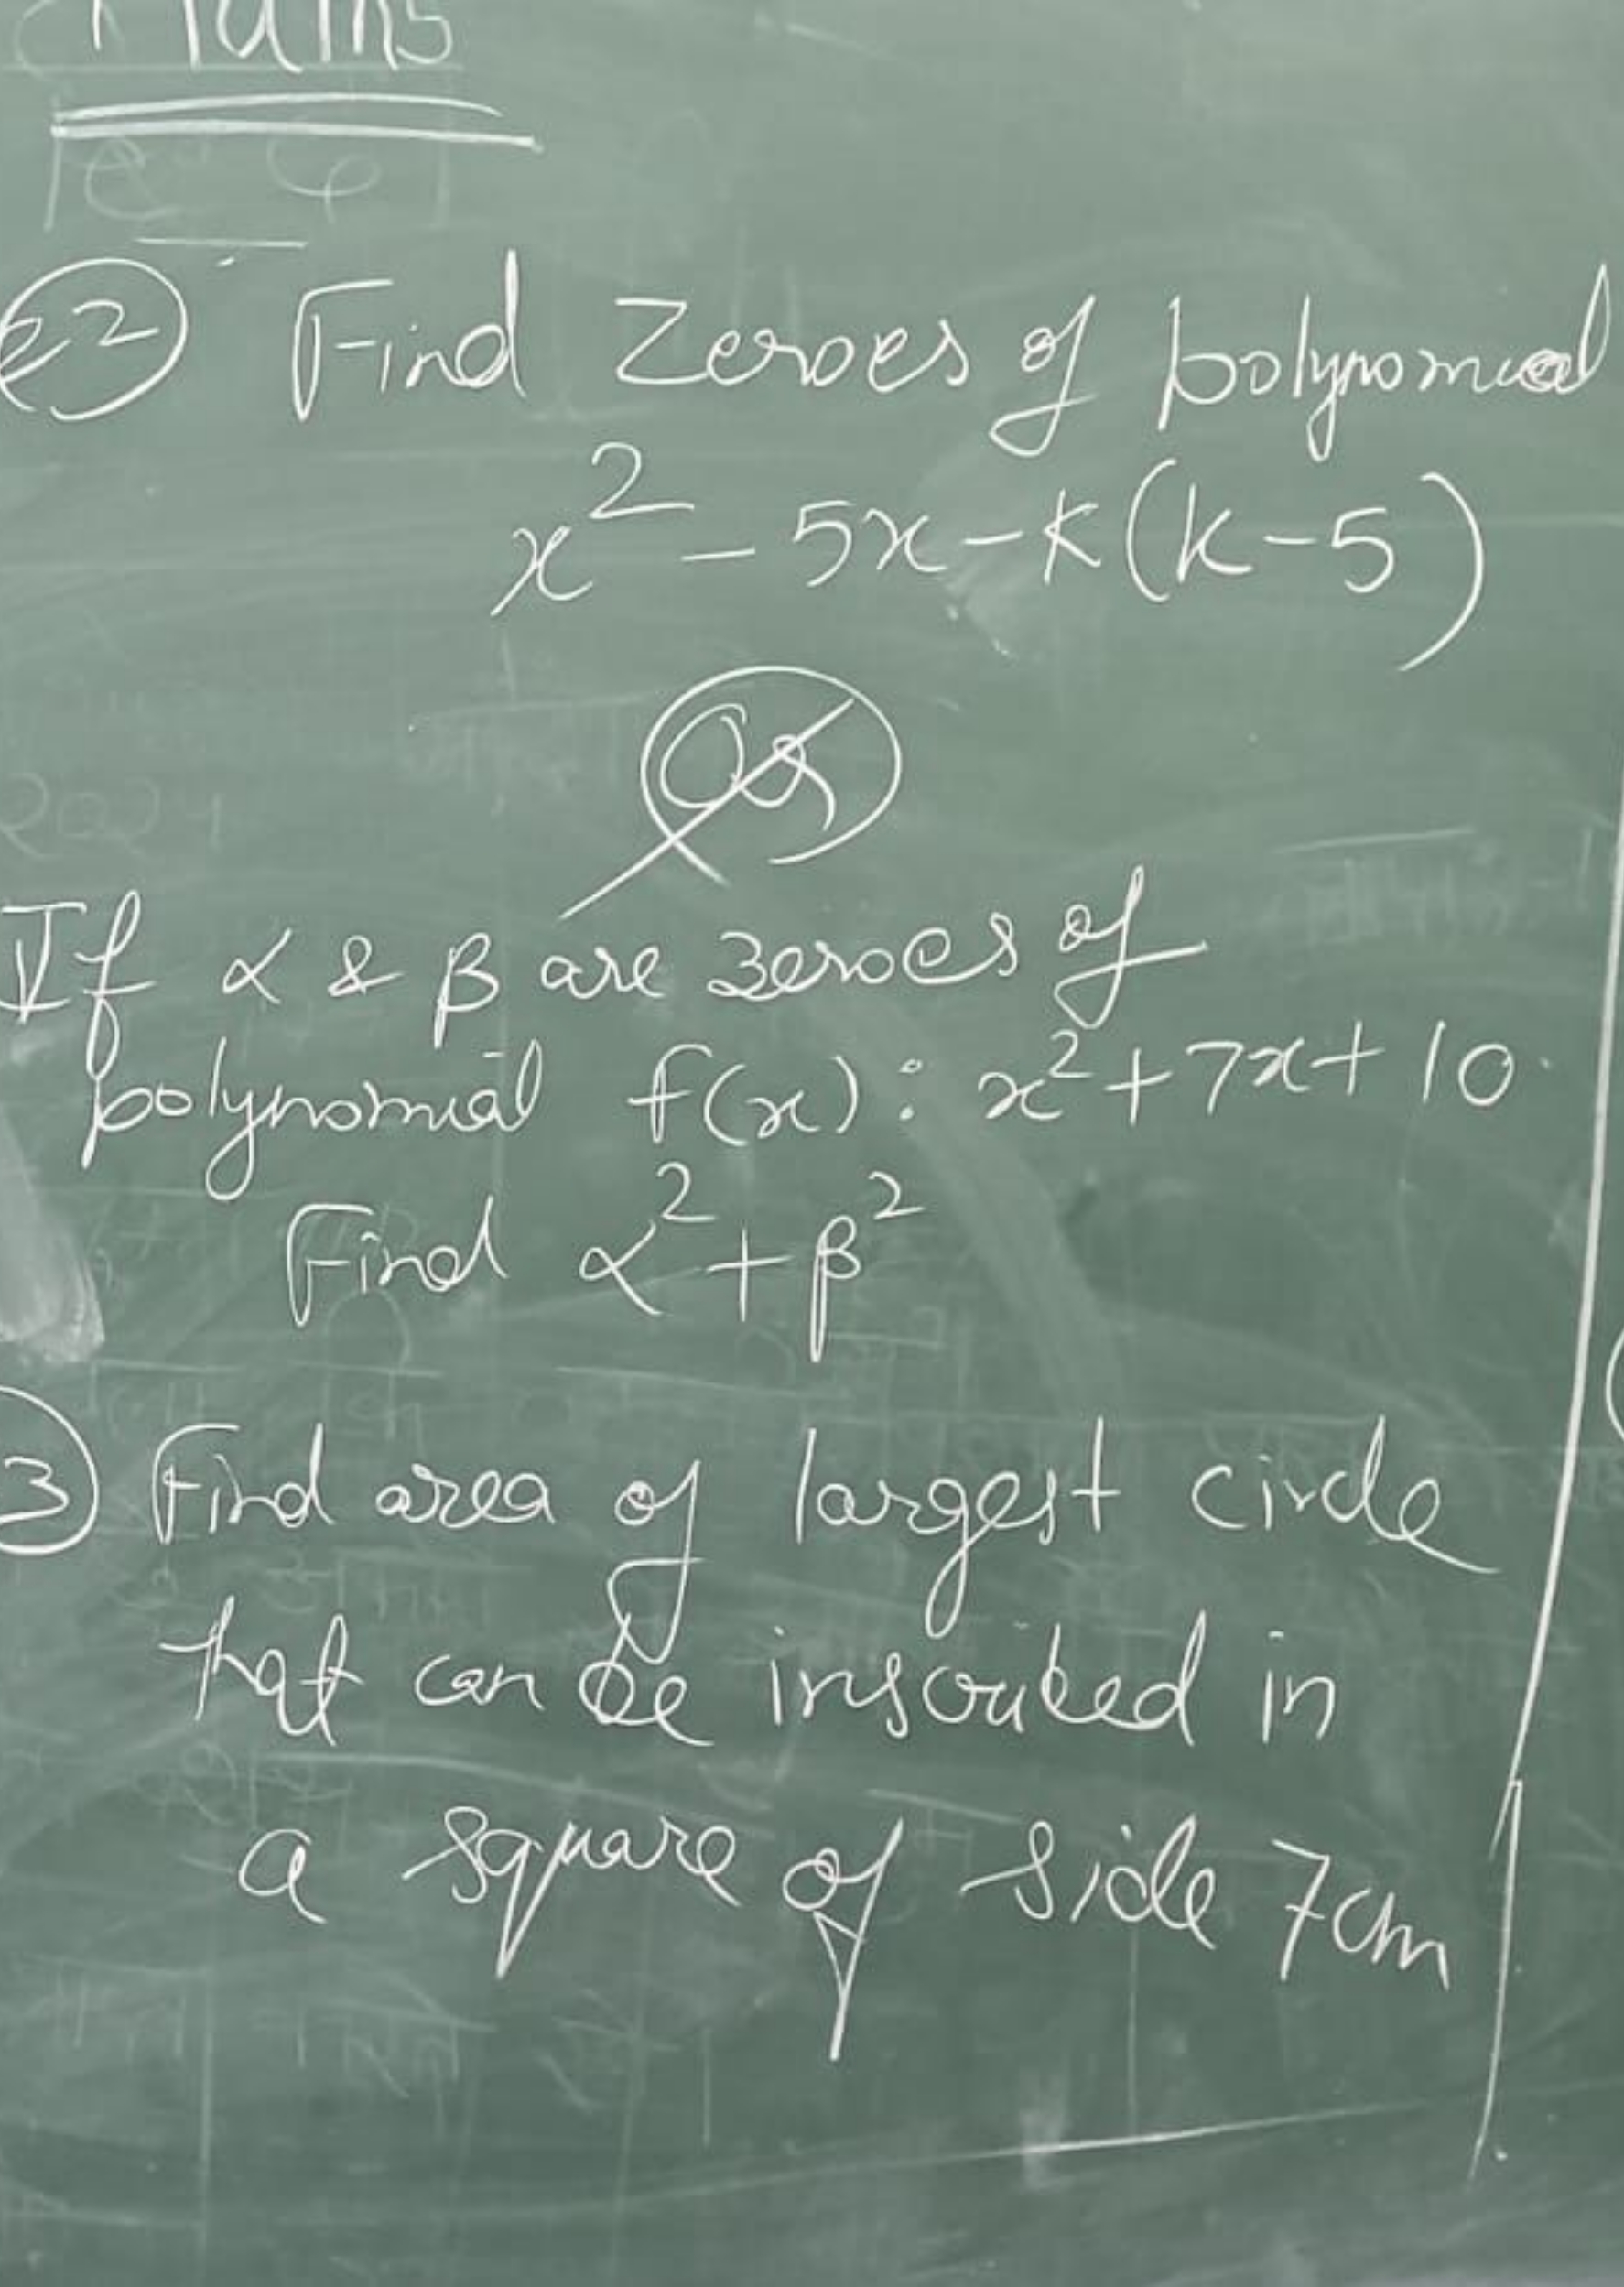 ② Find Zeroes of polynomial
x² - 5x - k(k-5)
Or
If α & β are zeroes of
polynomial f(x) : x² + 7x + 10
Find α² + β²
③ Find area of largest circle
that can be inscribed in
a square of side 7cm